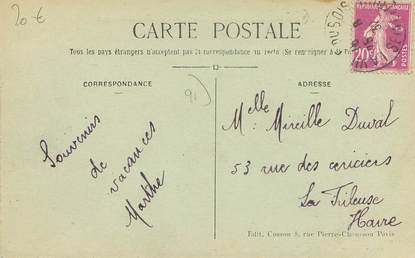 20 €
CARTE POSTALE
Tous les pays étrangers n'acceptent pas la correspondance au recto (Se renseigner à la
CORRESPONDANCE
ADRESSE
20c
POSTES
91
Souvenirs
de
vacances
Marthe
Melle Mireille Duval
53 rue des cerisiers
La Frileuse
Havre
Edit. Cosson 8, rue Pierre-Chausson Paris